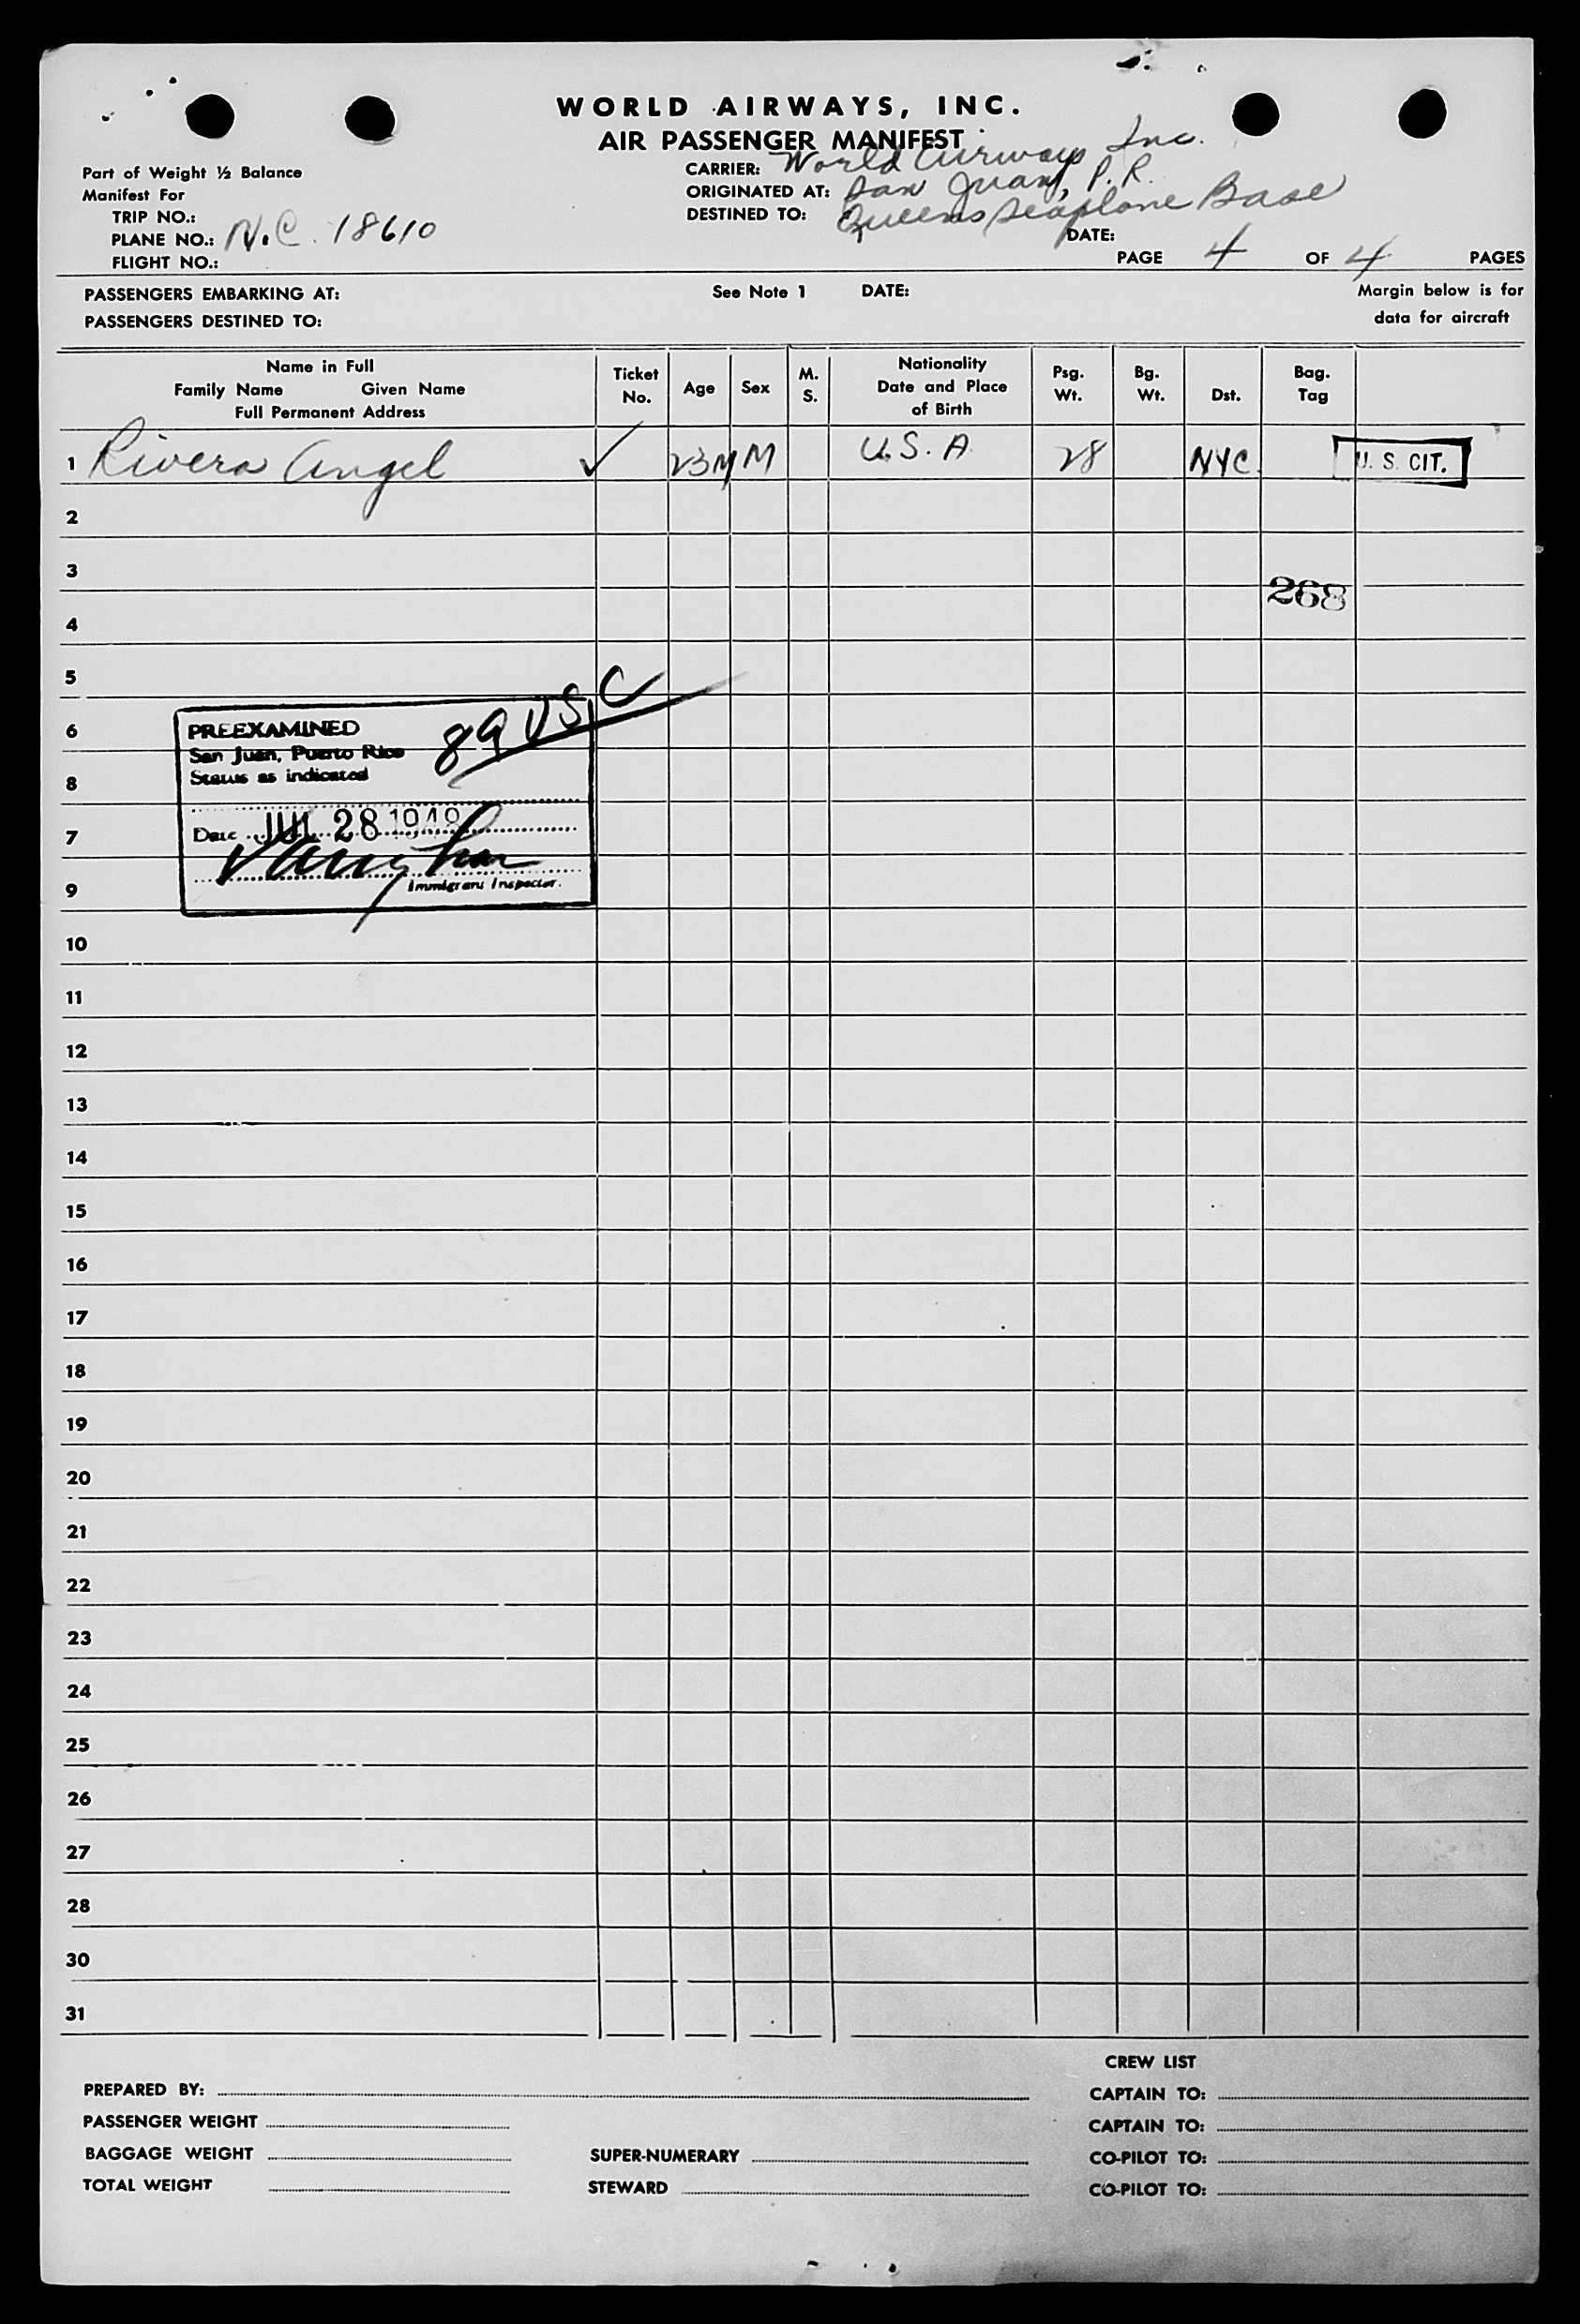 WORLD AIRWAYS, INC.
AIR PASSENGER MANIFEST
Part of Weight ½ Balance
Manifest For
TRIP NO.:
PLANE NO.: N.C. 18610
FLIGHT NO.:
CARRIER: World Airways Inc.
ORIGINATED AT: San Juan, P.R.
DESTINED TO: Queens Seaplane Base
DATE:
PAGE 4 OF 4 PAGES
PASSENGERS EMBARKING AT: See Note 1 DATE:
PASSENGERS DESTINED TO:
Margin below is for
data for aircraft
Name in Full
Family Name Given Name
Full Permanent Address
Ticket
No.
Age
Sex
M.
S.
Nationality
Date and Place
of Birth
Psg.
Wt.
Bg.
Wt.
Dst.
Bag.
Tag
1 Rivera Angel ✓ 23 M M U.S.A. 28 NYC U. S. CIT.
2
3
268
4
5
6
8
7
9
PREEXAMINED
San Juan, Puerto Rico
Status as indicated
89 USC
Date JUL 28 1948
Vaughan
Immigrant Inspector.
10
11
12
13
14
15
16
17
18
19
20
21
22
23
24
25
26
27
28
30
31
PREPARED BY:
PASSENGER WEIGHT
BAGGAGE WEIGHT
TOTAL WEIGHT
SUPER-NUMERARY
STEWARD
CREW LIST
CAPTAIN TO:
CAPTAIN TO:
CO-PILOT TO:
CO-PILOT TO: